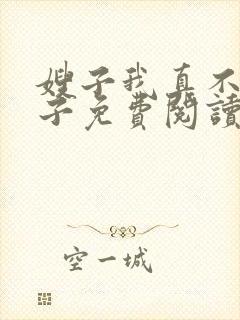 嫂子我真不
子免費閱讀
空一城